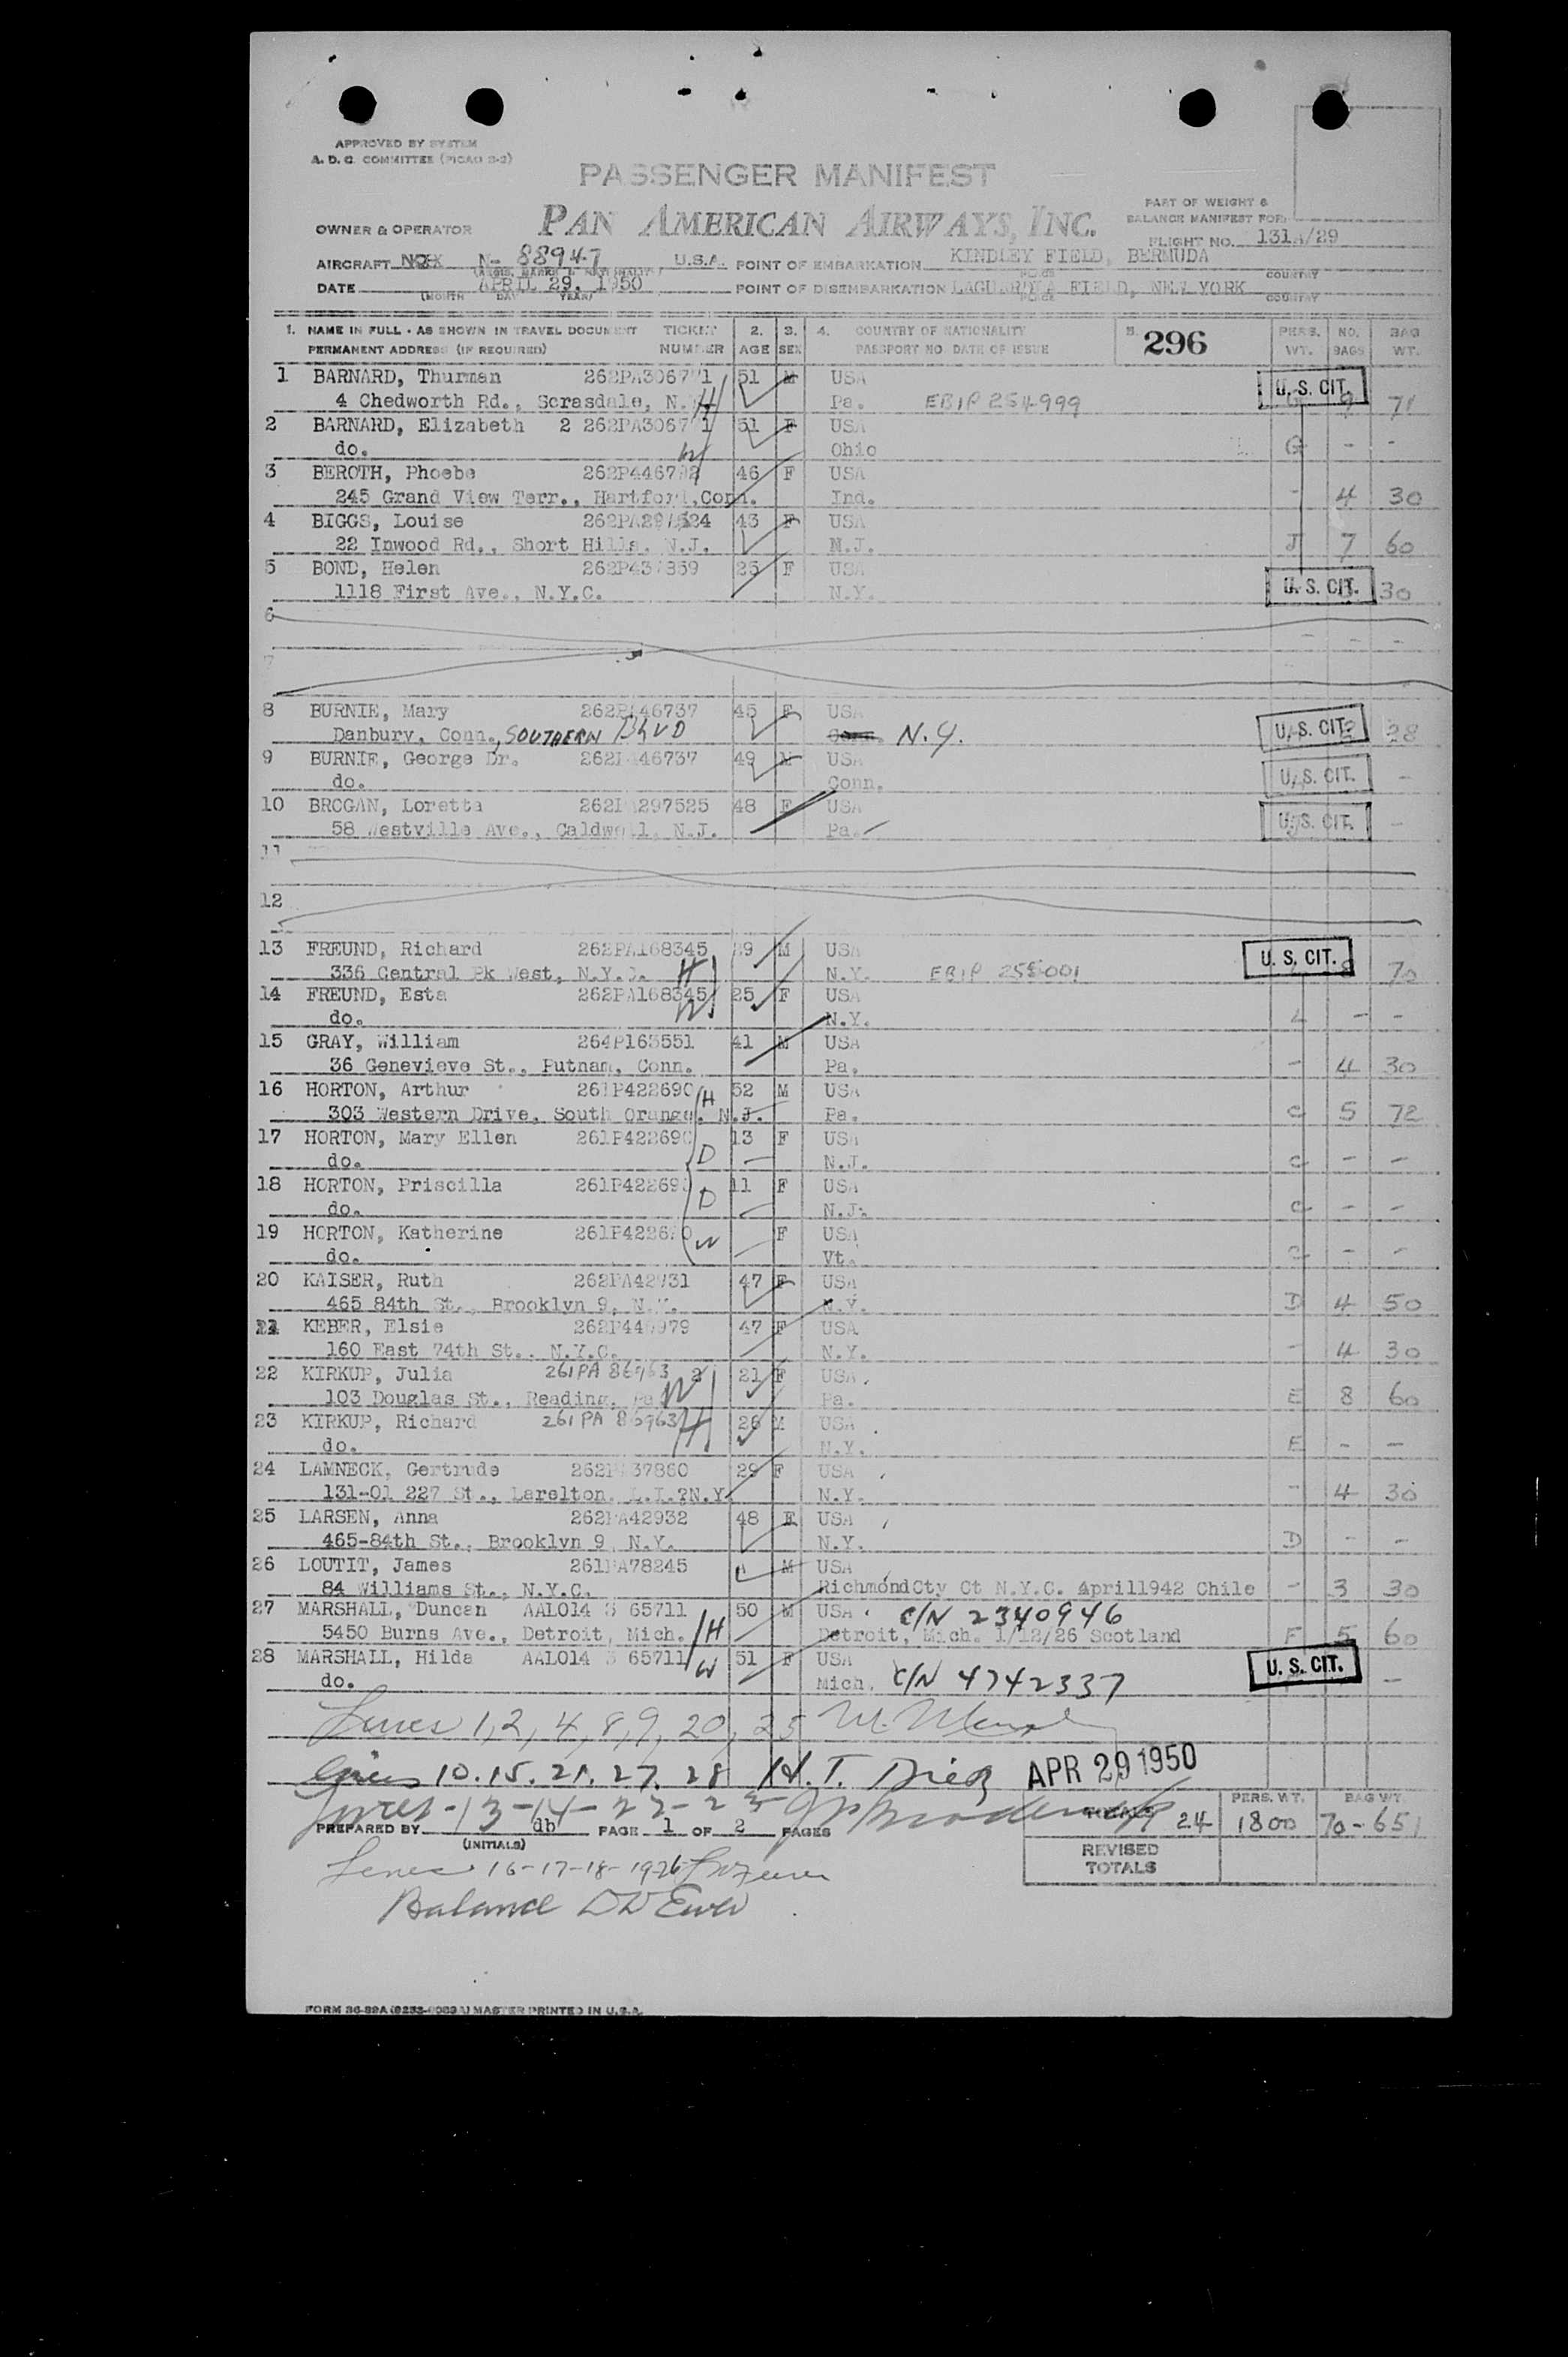 APPROVED BY SYSTEM
A. D. C. COMMITTEE (PICAO 2-2)
PASSENGER MANIFEST
PAN AMERICAN AIRWAYS, INC.
PART OF WEIGHT &
BALANCE MANIFEST FOR:
OWNER & OPERATOR
FLIGHT NO. 131A/29
AIRCRAFT N- 88947 U.S.A. POINT OF EMBARKATION KINDLEY FIELD, BERMUDA
PLACE COUNTRY
DATE APRIL 29, 1950 POINT OF DISEMBARKATION LAGUARDIA FIELD, NEW YORK
(MONTH DAY YEAR) PLACE COUNTRY
1. NAME IN FULL - AS SHOWN IN TRAVEL DOCUMENT TICKET 2. 3. 4. COUNTRY OF NATIONALITY 5. 296 PERS. NO. BAG
PERMANENT ADDRESS (IF REQUIRED) NUMBER AGE SEX PASSPORT NO. DATE OF ISSUE WT. BAGS WT.
1 BARNARD, Thurman 51 M USA U. S. CIT.
4 Chedworth Rd., Scrasdale, N. H Pa. EBIP 254999 9 71
2 BARNARD, Elizabeth 2 51 F USA
do. W Ohio G - -
3 BEROTH, Phoebe 46 F USA
245 Grand View Terr., Hartford, Conn. Ind. - 4 30
4 BIGGS, Louise 43 F USA
22 Inwood Rd., Short Hills, N.J. N.J. J 7 60
5 BOND, Helen 25 F USA
1118 First Ave., N.Y.C. N.Y. U. S. CIT. 30
6
7
8 BURNIE, Mary 45 F USA
Danbury, Conn., SOUTHERN BLVD Conn. N.Y. U. S. CIT. 28
9 BURNIE, George Dr. 49 M USA
do. Conn. U. S. CIT. -
10 BROGAN, Loretta 48 F USA
58 Westville Ave., Caldwell, N.J. Pa. U. S. CIT. -
11
12
13 FREUND, Richard 262PA168345 M USA U. S. CIT.
336 Central Pk West, N.Y.C. H N.Y. EBIP 70
14 FREUND, Esta 262PA168345 25 F USA
do. W N.Y. L - -
15 GRAY, William 264P163551 41 M USA
36 Genevieve St., Putnam, Conn. Pa. - 4 30
16 HORTON, Arthur 261P422690 H 52 M USA
303 Western Drive, South Orange, N.J. Pa. C 5 72
17 HORTON, Mary Ellen 261P422690 13 F USA
do. D N.J. C - -
18 HORTON, Priscilla 261P422690 11 F USA
do. D N.J. C - -
19 HORTON, Katherine 261P422690 F USA
do. W Vt. C - -
20 KAISER, Ruth 262PA42931 47 F USA
465 84th St., Brooklyn 9, N.Y. N.Y. D 4 50
21 KEBER, Elsie 47 F USA
160 East 74th St., N.Y.C. N.Y. - 4 30
22 KIRKUP, Julia 261PA 86963 2 21 F USA
103 Douglas St., Reading, Pa. W Pa. E 8 60
23 KIRKUP, Richard 261 PA 86963 H 26 M USA
do. N.Y. E - -
24 LAMNECK, Gertrude 29 F USA
131-01 227 St., Larelton, L.I.?N.Y. N.Y. - 4 30
25 LARSEN, Anna 262PA42932 48 F USA
465-84th St., Brooklyn 9 N.Y. N.Y. D - -
26 LOUTIT, James 261PA78245 M USA
84 Williams St., N.Y.C. RichmondCty Ct N.Y.C. April1942 Chile - 3 30
27 MARSHALL, Duncan AAL014 65711 50 M USA C/N 2340946
5450 Burns Ave., Detroit, Mich. H Detroit, Mich. 1/12/26 Scotland F 5 60
28 MARSHALL, Hilda AAL014 65711 51 F USA
do. W Mich. C/N 4742337 U. S. CIT. -
Lines 1, 2, 4, 8, 9, 20, 25
Lines 10. 15. 21. 27. 28 H. T. APR 29 1950
Lines - 13 - 14 - 22 - 23
PERS. WT. BAG WT.
PREPARED BY db PAGE 1 OF 2 PAGES TOTALS 24 1800 70-651
(INITIALS)
REVISED
TOTALS
Lines 16-17-18-19-26
Balance
FORM MASTER PRINTED IN U.S.A.